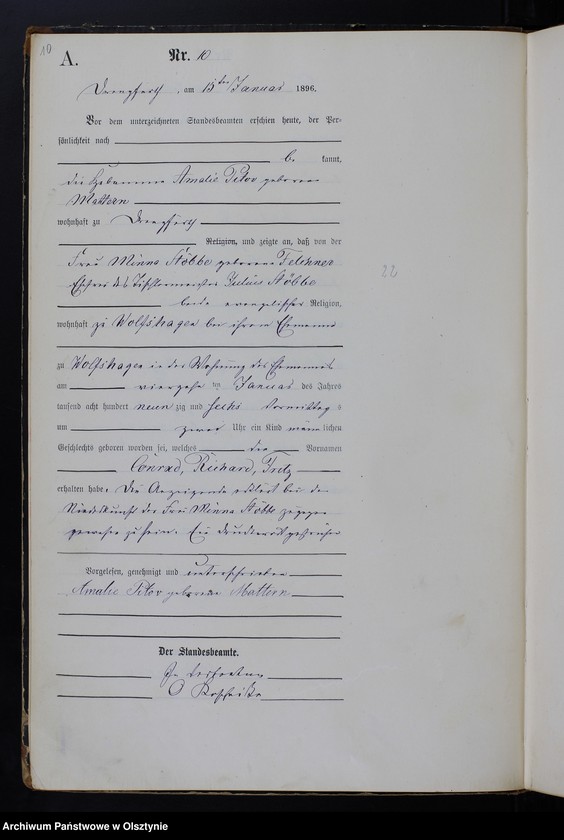 10
A.
Nr. 10
Drengfurth, am 15ten Januar 1896.
Vor dem unterzeichneten Standesbeamten erschien heute, der Per-
sönlichkeit nach
be kannt,
die Hebamme Amalie Titov geborene
Mattern
wohnhaft zu Drengfurth
Religion, und zeigte an, daß von der
Frau Minna Stöbbe geborene Felchner
Ehefrau des Tischlermeisters Julius Stöbbe
beide evangelischer Religion,
wohnhaft zu Wolfshagen bei ihrem Ehemanne
zu Wolfshagen in der Wohnung des Ehemannes
am vierzehn ten Januar des Jahres
tausend acht hundert neunzig und sechs Vormittag s
um zwei Uhr ein Kind männ lichen
Geschlechts geboren worden sei, welches die Vornamen
Conrad, Richard, Fritz
erhalten habe. Die Anzeigende erklärt bei der
Niederkunft der Frau Minna Stöbbe zugegen
gewesen zu sein. Ein Druckwort gestrichen
Vorgelesen, genehmigt und unterschrieben
Amalie Titov geborene Mattern
Der Standesbeamte.
In Vertretung
22
Archiwum Państwowe w Olsztynie